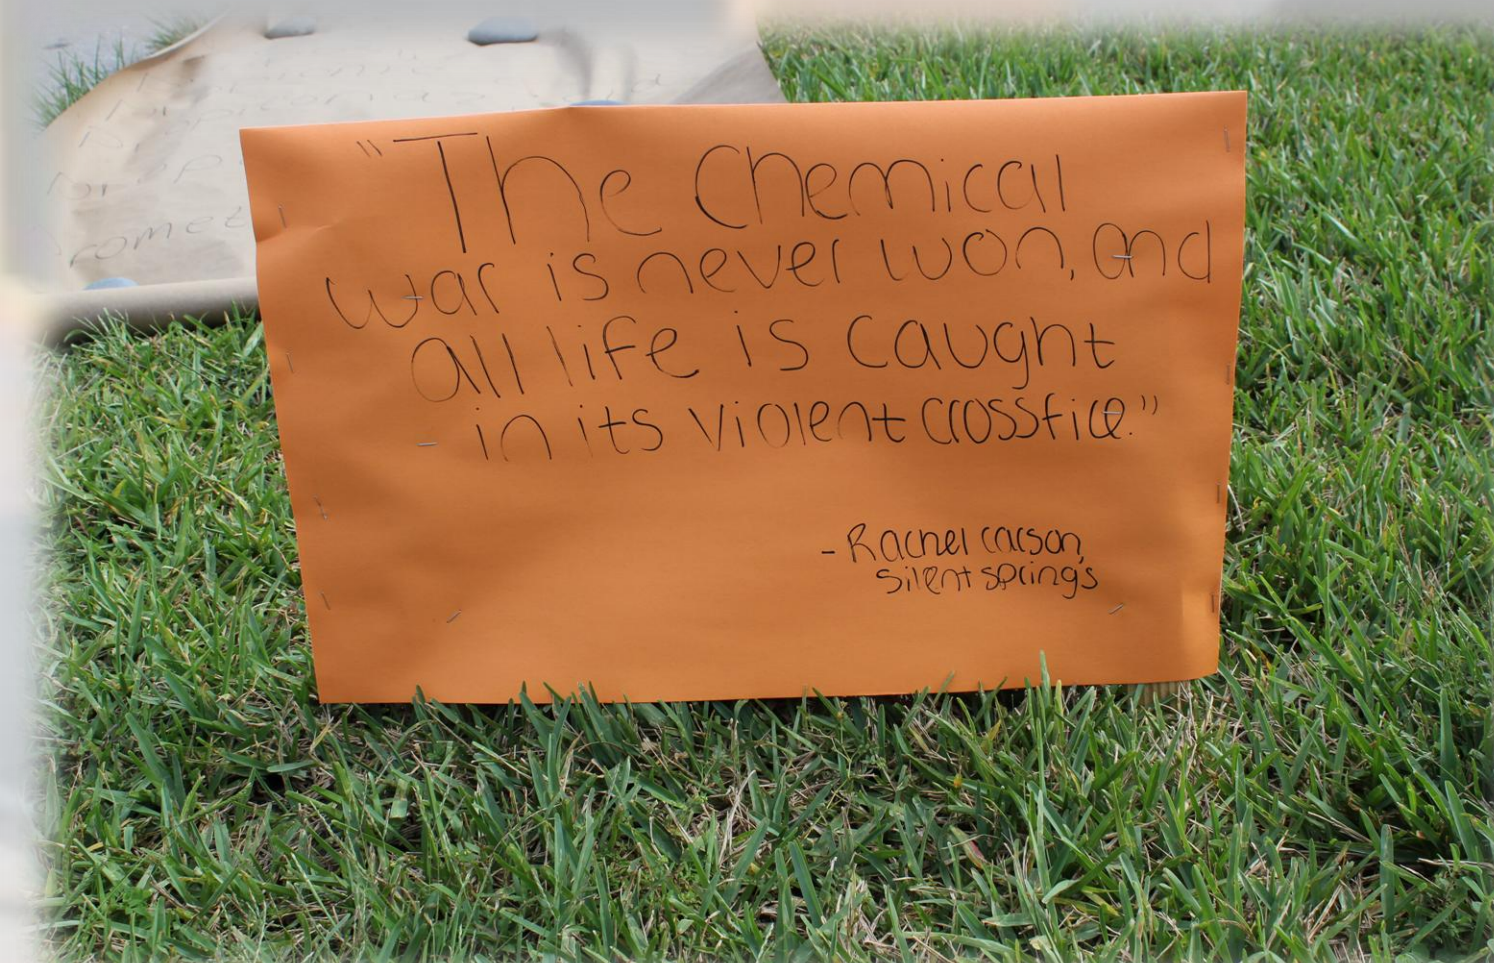 "The Chemical
war is never won, and
all life is caught
in its violent crossfire."
- Rachel Carson,
silent springs